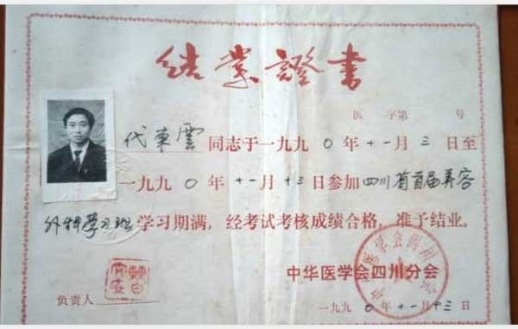 结業證書
医 字第 号
代東雲 同志于一九九0年十一月三日至
一九九0年十一月十三日参加四川省首届美容
外科学习班学习期满，经考试考核成绩合格，准予结业。
中华医学会四川分会
负责人
一九九0年十一月十三日